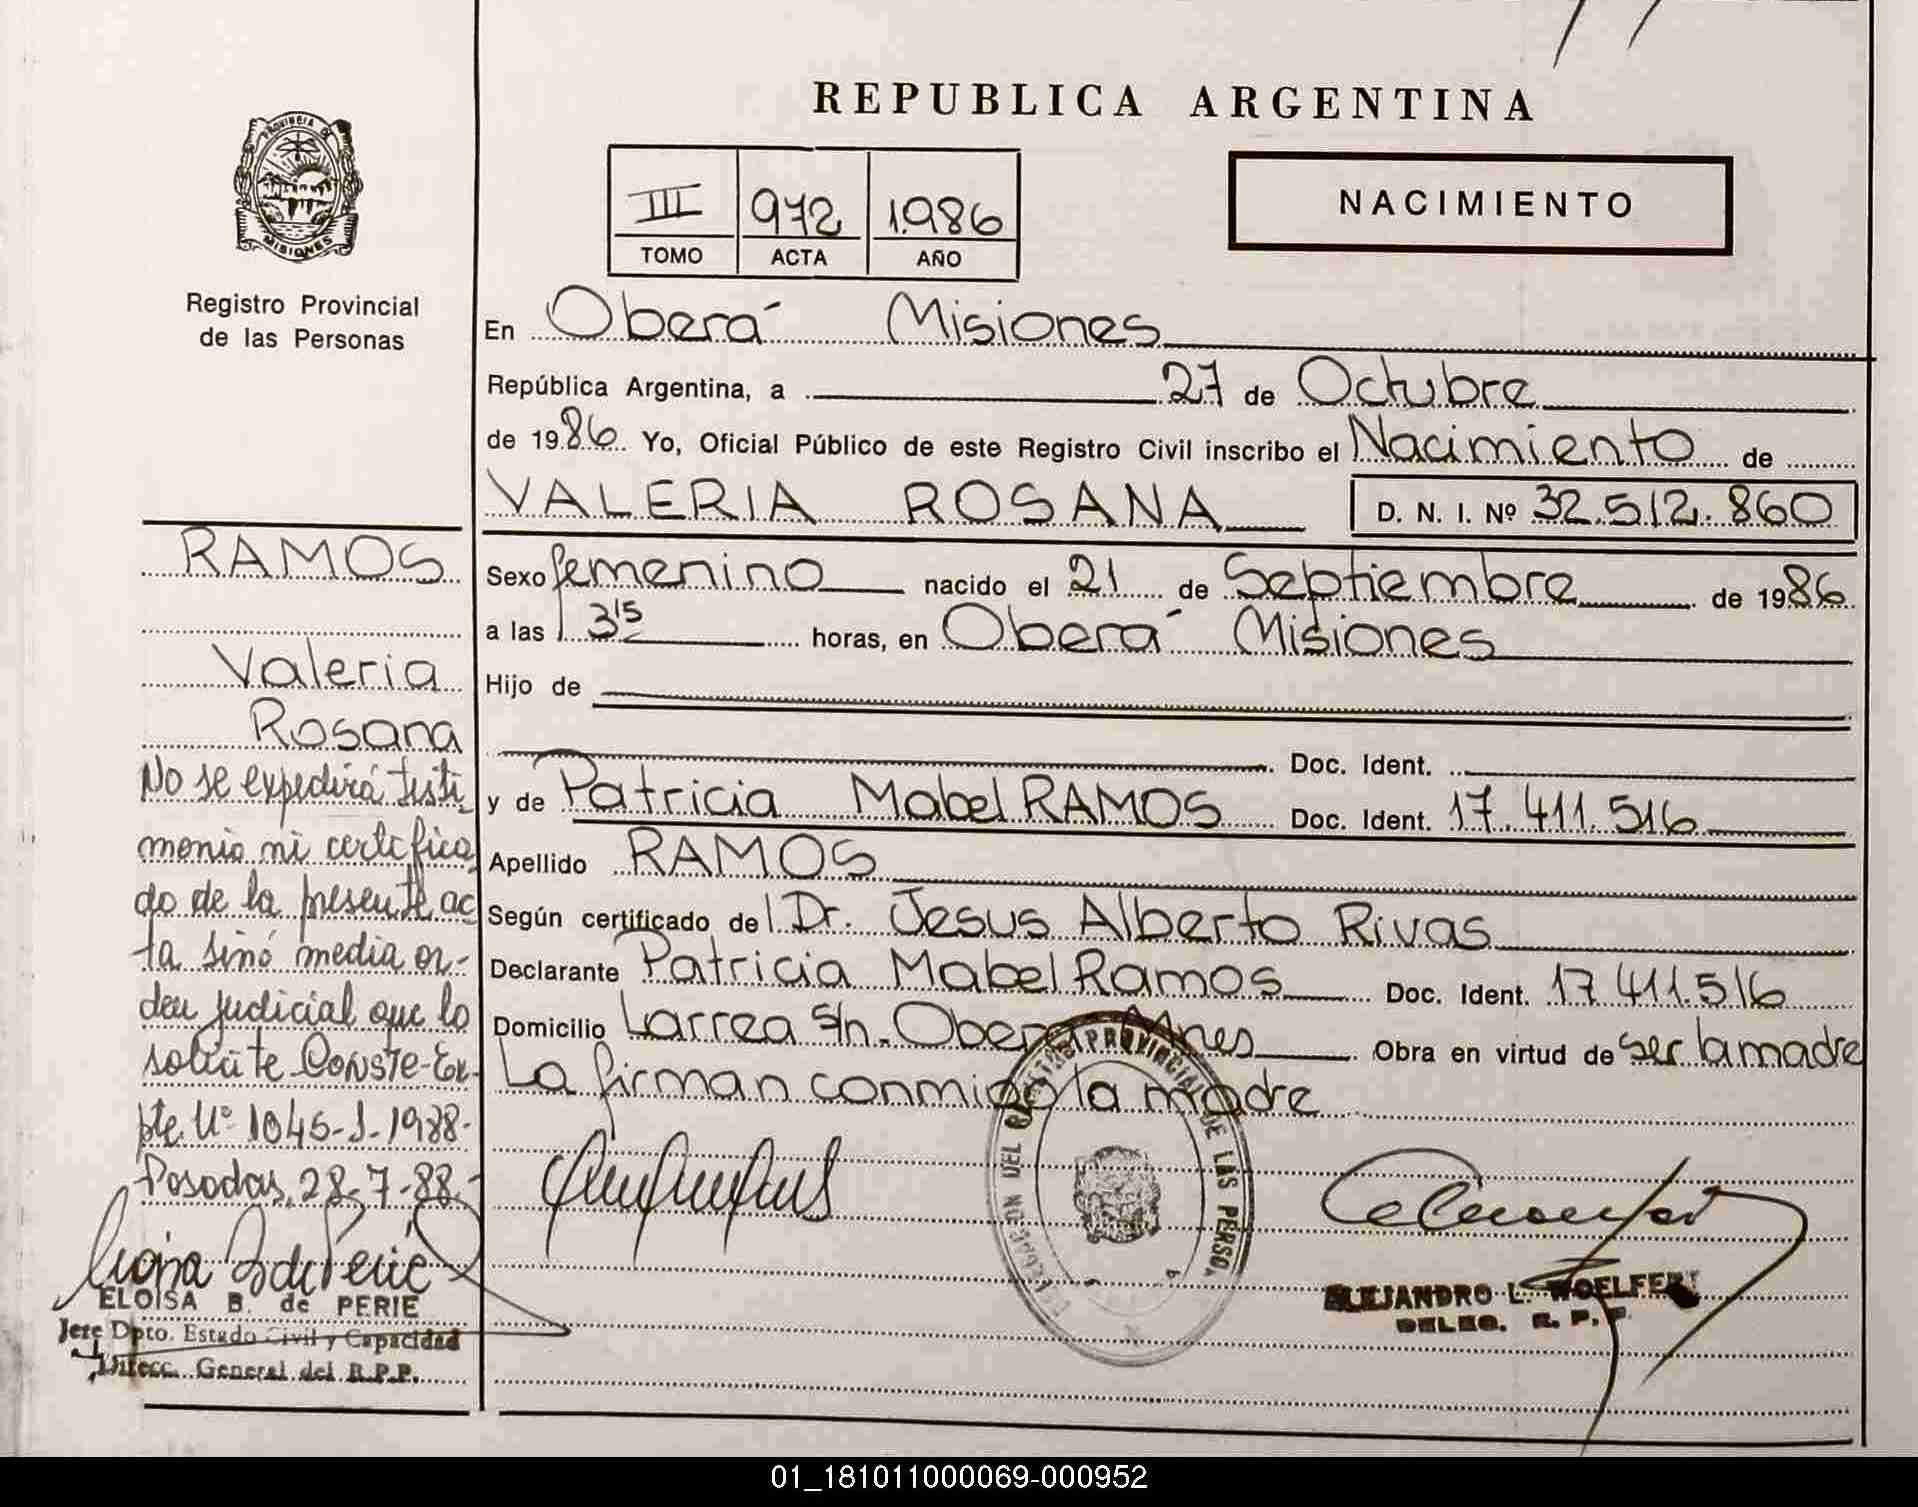 REPUBLICA ARGENTINA
PROVINCIA DE
MISIONES
Registro Provincial
de las Personas
III 972 1.986
TOMO ACTA AÑO
NACIMIENTO
En Oberá Misiones
República Argentina, a 27 de Octubre
de 1986 Yo, Oficial Público de este Registro Civil inscribo el Nacimiento de
VALERIA ROSANA D. N. I. Nº 32.512.860
Sexo femenino nacido el 21 de Septiembre de 1986
a las 3 15 horas, en Oberá Misiones
Hijo de
Doc. Ident.
y de Patricia Mabel RAMOS Doc. Ident. 17.411.516
Apellido RAMOS
Según certificado del Dr. Jesus Alberto Rivas
Declarante Patricia Mabel Ramos Doc. Ident. 17.411.516
Domicilio Larrea s/n. Oberá Mnes Obra en virtud de ser la madre
La firman conmigo la madre
RAMOS
Valeria
Rosana
No se expedirá testi
monio ni certifica
do de la presente ac
ta sinó media or-
den judicial que lo
solicite CONSTE-Ex-
pte Nº 1045-J-1988-
Posadas, 28-7-88-
ELOISA B. de PERIE
Jefe Dpto. Estado Civil y Capacidad
Direcc. General del R.P.P.
PROVINCIAL DE LAS PERSO
ALEJANDRO L. WOELFERT
DELEG. R. P. P.
01_181011000069-000952